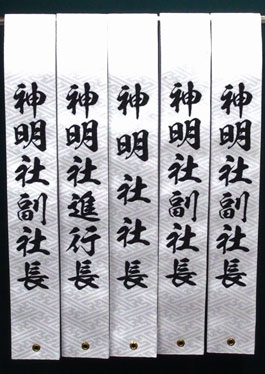 神明社副社長
神明社副社長
神明社社長
神明社進行長
神明社副社長